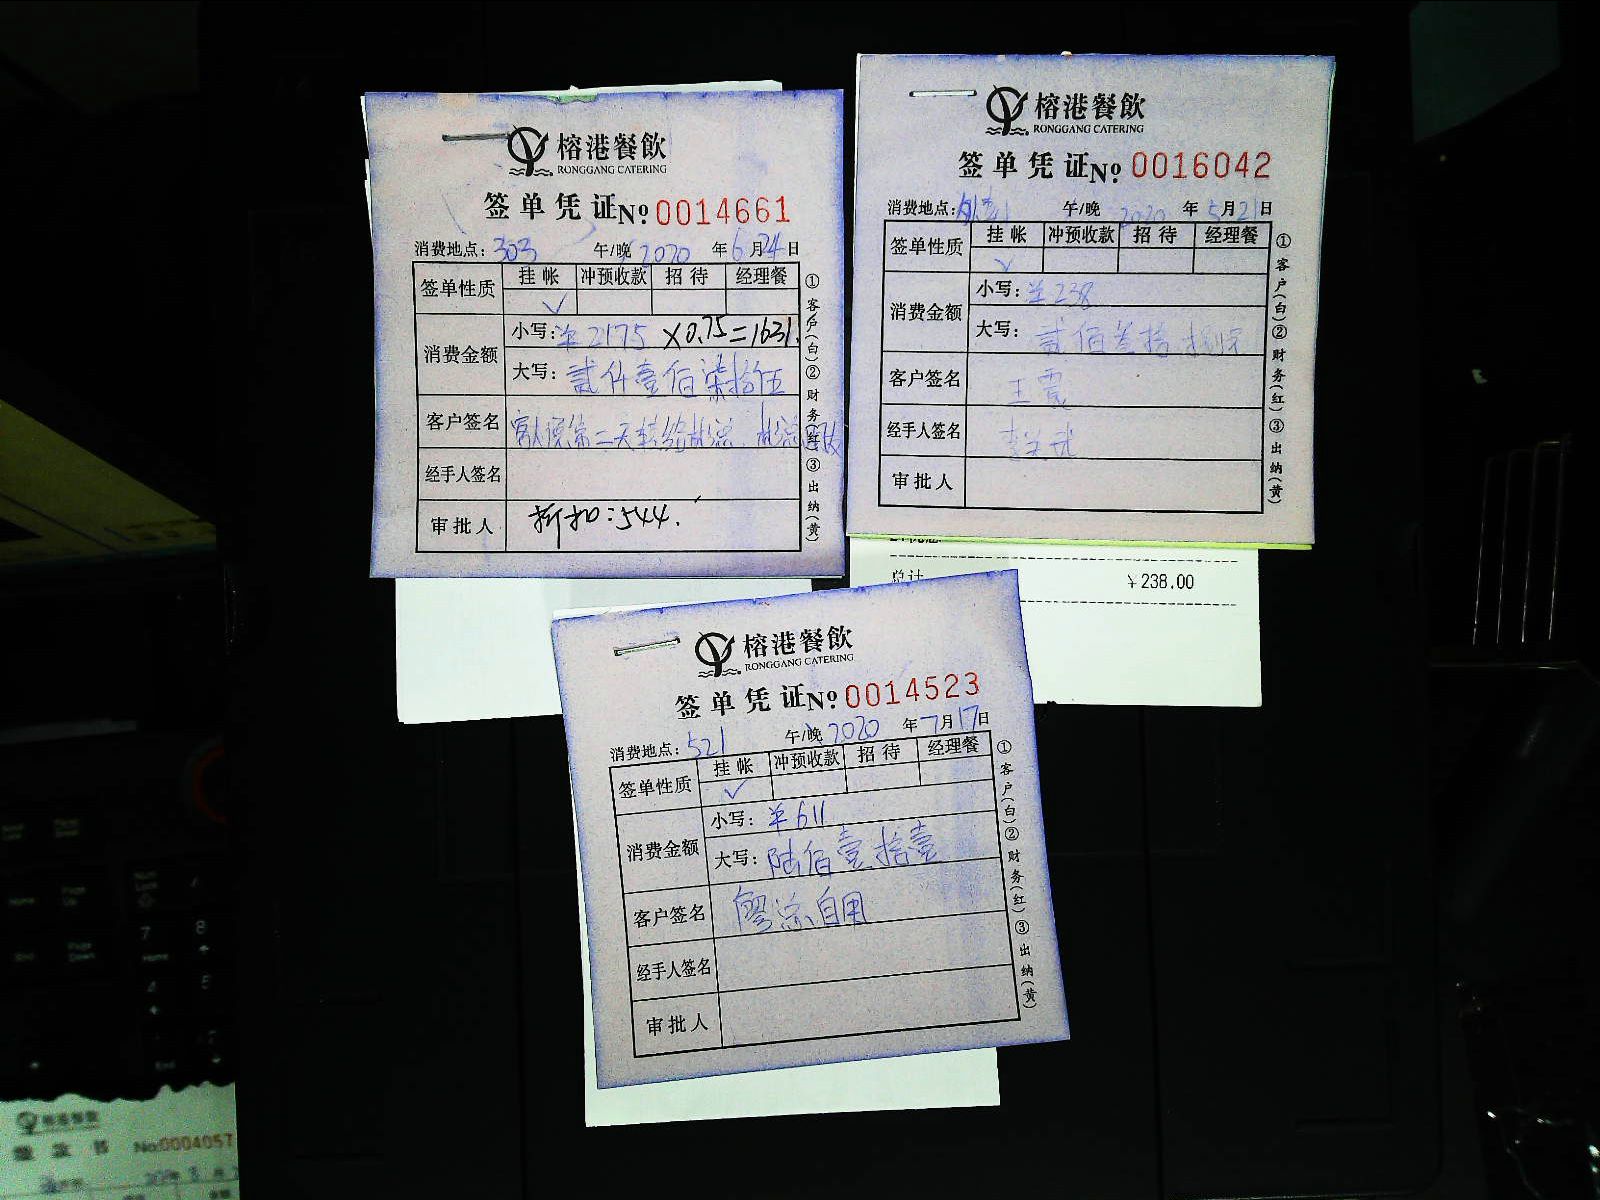 榕港餐飲
RONGGANG CATERING
签单凭证№ 0014661
消费地点: 303 午/晚 2020 年 6 月 24 日
签单性质 挂帐 冲预收款 招待 经理餐
✓
消费金额
小写: ¥2175 ×0.75=1631.
大写: 贰仟壹佰柒拾伍
客户签名 客人说第二天转给林总.
经手人签名
审批人 折扣:544.
①客户(白)②财务(红)③出纳(黄)
榕港餐飲
RONGGANG CATERING
签单凭证№ 0016042
消费地点: 午/晚 2020 年 5 月 21 日
签单性质 挂帐 冲预收款 招待 经理餐
✓
消费金额
小写: ¥238
大写: 贰佰叁拾捌
客户签名 王霞
经手人签名
审批人
①客户(白)②财务(红)③出纳(黄)
总计 ¥238.00
榕港餐飲
RONGGANG CATERING
签单凭证№ 0014523
消费地点: 521 午/晚 2020 年 7 月 17 日
签单性质 挂帐 冲预收款 招待 经理餐
✓
消费金额
小写: ¥611
大写: 陆佰壹拾壹
客户签名 廖总自用
经手人签名
审批人
①客户(白)②财务(红)③出纳(黄)
榕港餐飲
No:0004057